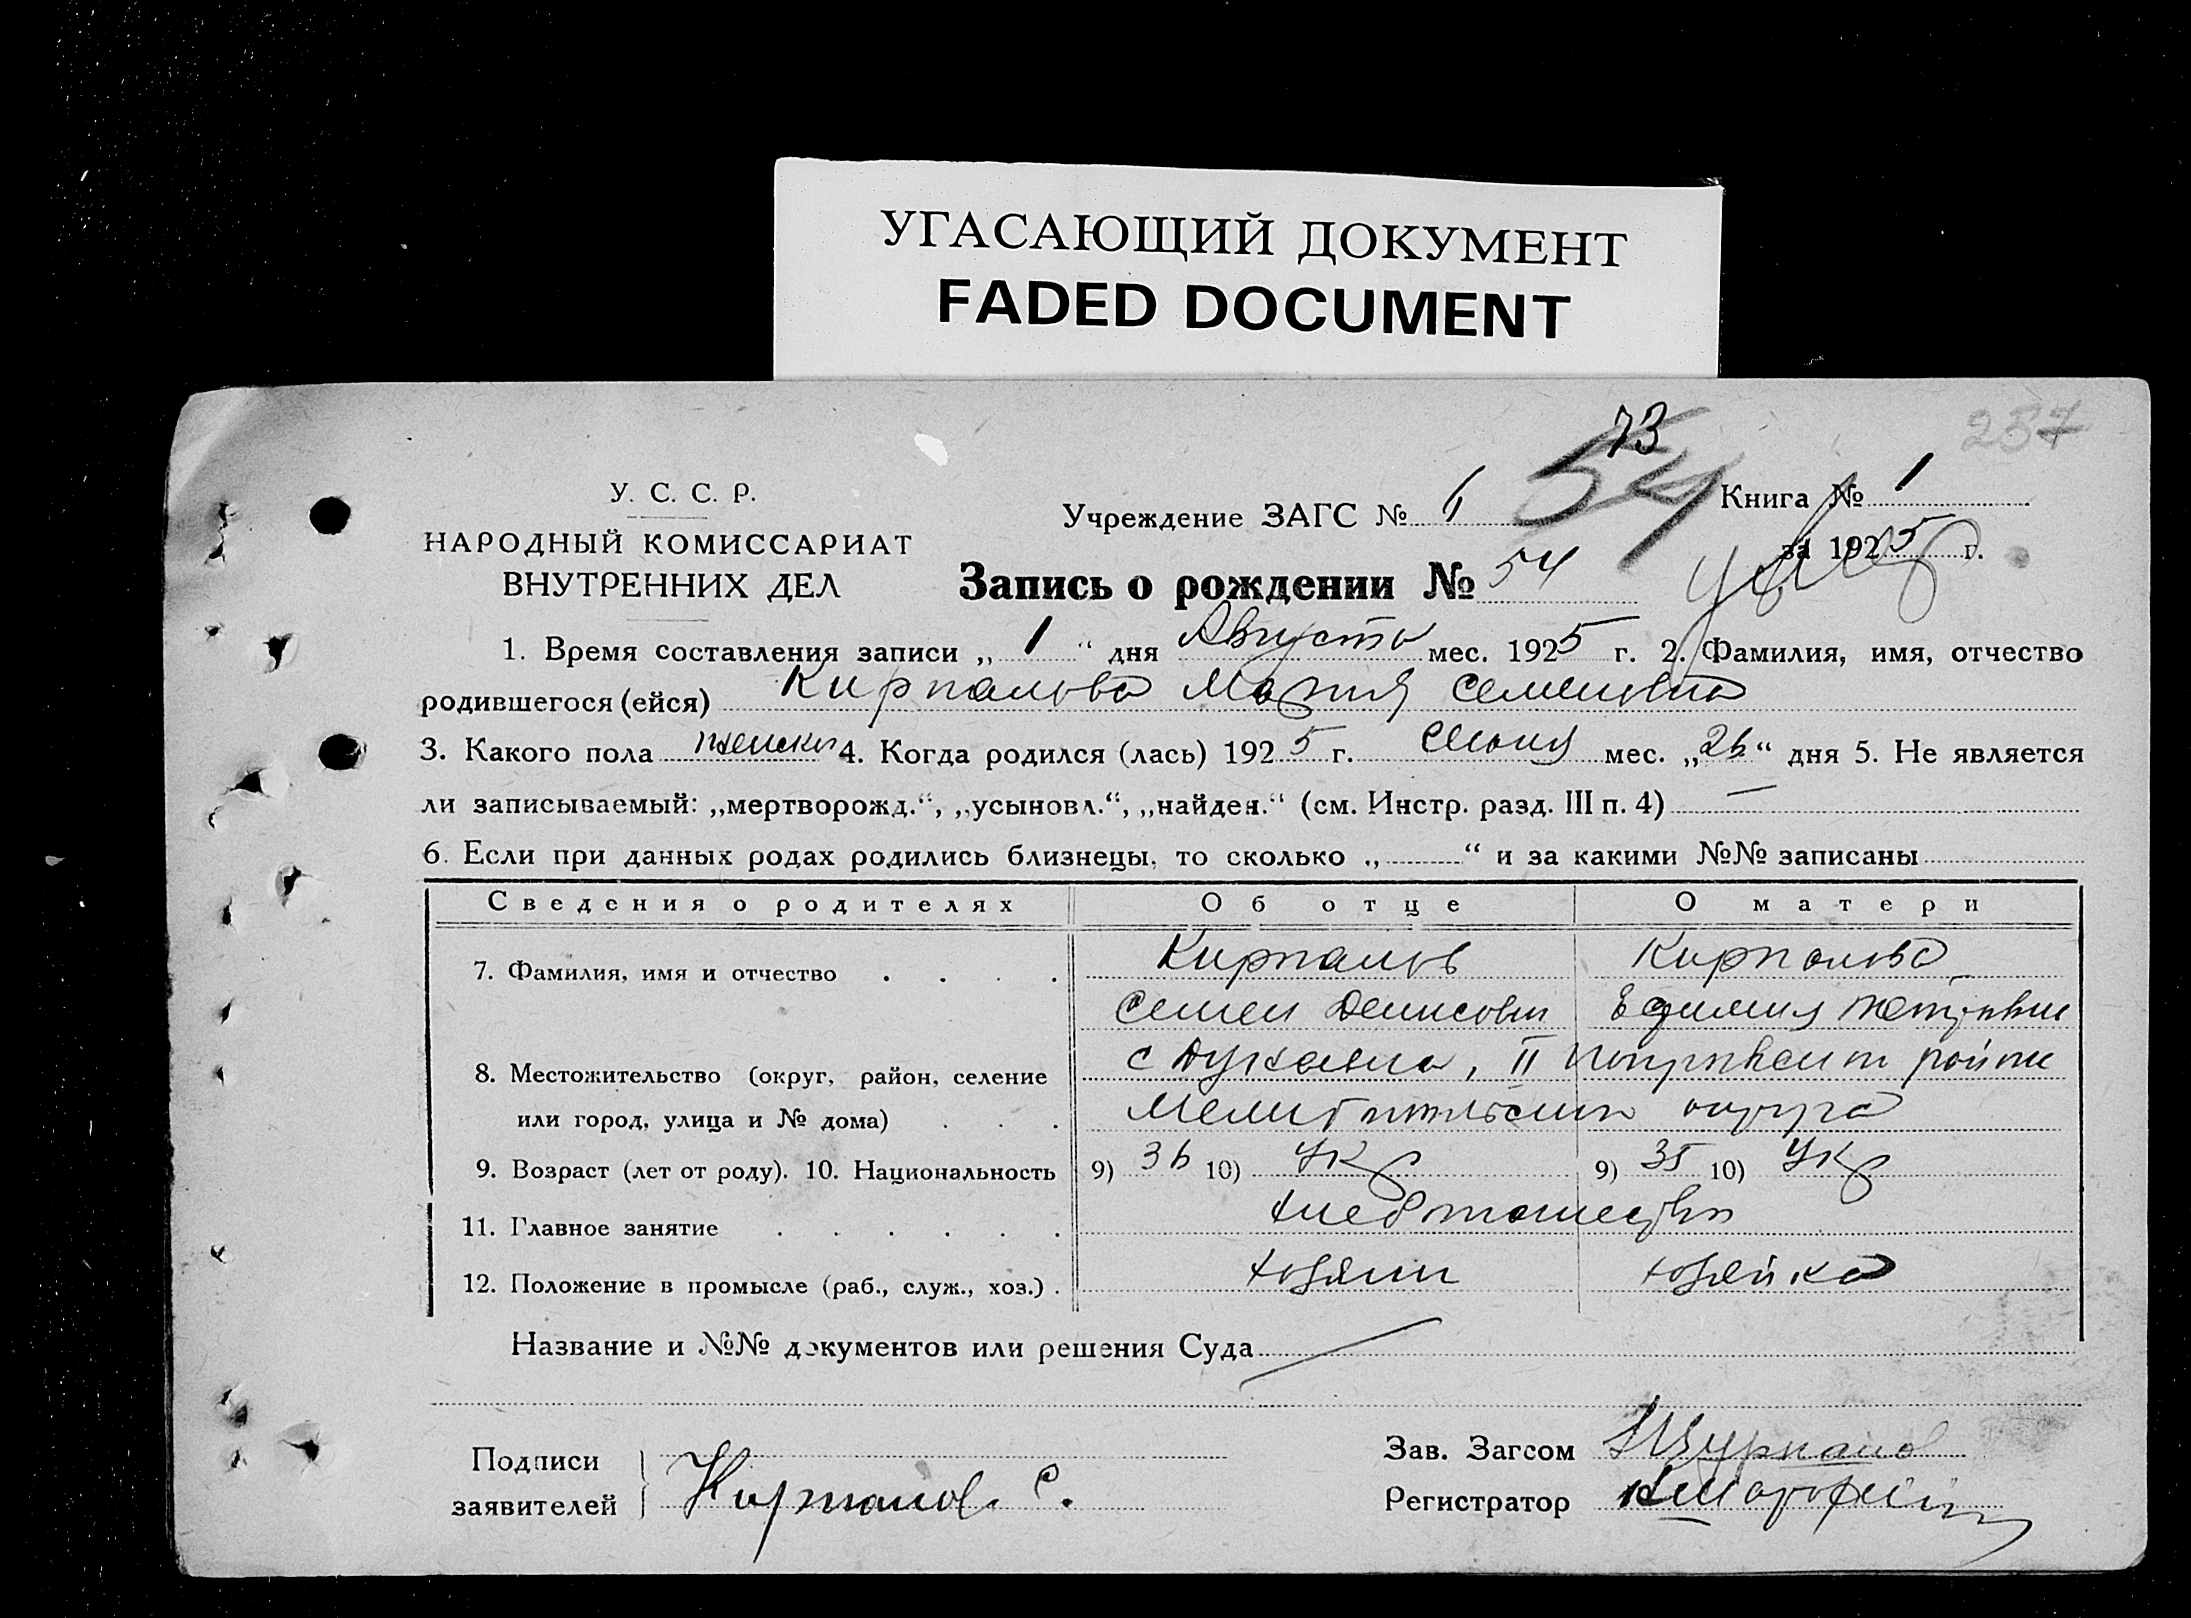 УГАСАЮЩИЙ ДОКУМЕНТ
FADED DOCUMENT
73
54
257
У. С. С. Р.
НАРОДНЫЙ КОМИССАРИАТ
ВНУТРЕННИХ ДЕЛ
Учреждение ЗАГС №
Книга № 1
за 1925 г.
Запись о рождении № 54
1. Время составления записи „ 1 “ дня Августа мес. 1925 г. 2. Фамилия, имя, отчество
родившегося (ейся) Кирпалова Мария Семеновна
3. Какого пола женски 4. Когда родился (лась) 1925 г. мес. „26“ дня 5. Не является
ли записываемый: „мертворожд.“, „усыновл.“, „найден.“ (см. Инстр. разд. III п. 4) —
6. Если при данных родах родились близнецы, то сколько „ “ и за какими №№ записаны
Сведения о родителях Об отце О матери
7. Фамилия, имя и отчество Кирпалов Кирпалова
Семен Денисович Ефимия
8. Местожительство (округ, район, селение с II
или город, улица и № дома) округа
9. Возраст (лет от роду). 10. Национальность 9) 36 10) Укр 9) 35 10) Укр
11. Главное занятие хлебопашество
12. Положение в промысле (раб., служ., хоз.) хозяин хозяйка
Название и №№ документов или решения Суда
Подписи
заявителей Кирпалов. С.
Зав. Загсом
Регистратор